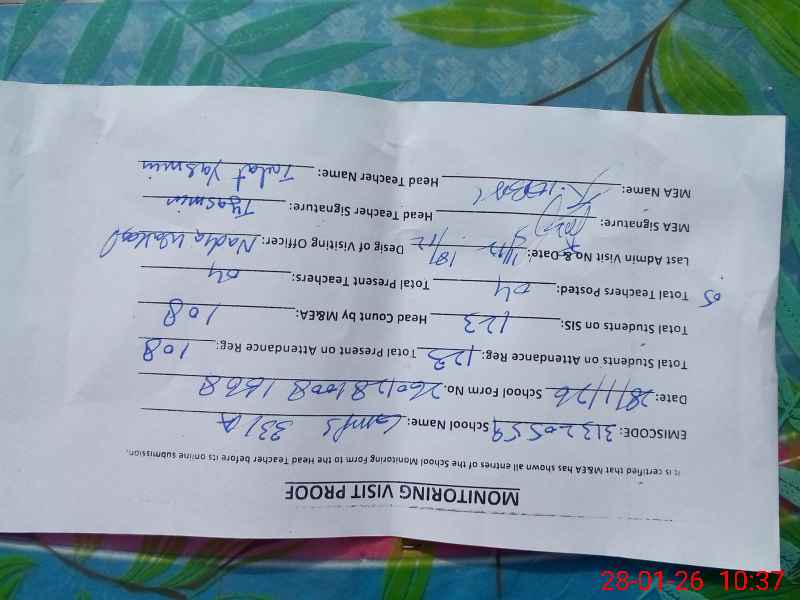 MONITORING VISIT PROOF
It is certified that M&EA has shown all entries of the School Monitoring Form to the Head Teacher before its online submission.
EMISCODE: 31320559 School Name: 331 A
Date: 28/1/26 School Form No. 260128 1008 1868
Total Students on Attendance Reg: 123 Total Present on Attendance Reg: 108
Total Students on SIS: 123 Head Count by M&EA: 108
05 Total Teachers Posted: 04 Total Present Teachers: 04
Last Admin Visit No.& Date: Desig of Visiting Officer: Nadia
MEA Signature: Head Teacher Signature: Tyasmin
MEA Name: Head Teacher Name: Talat Yasmin
28-01-26 10:37